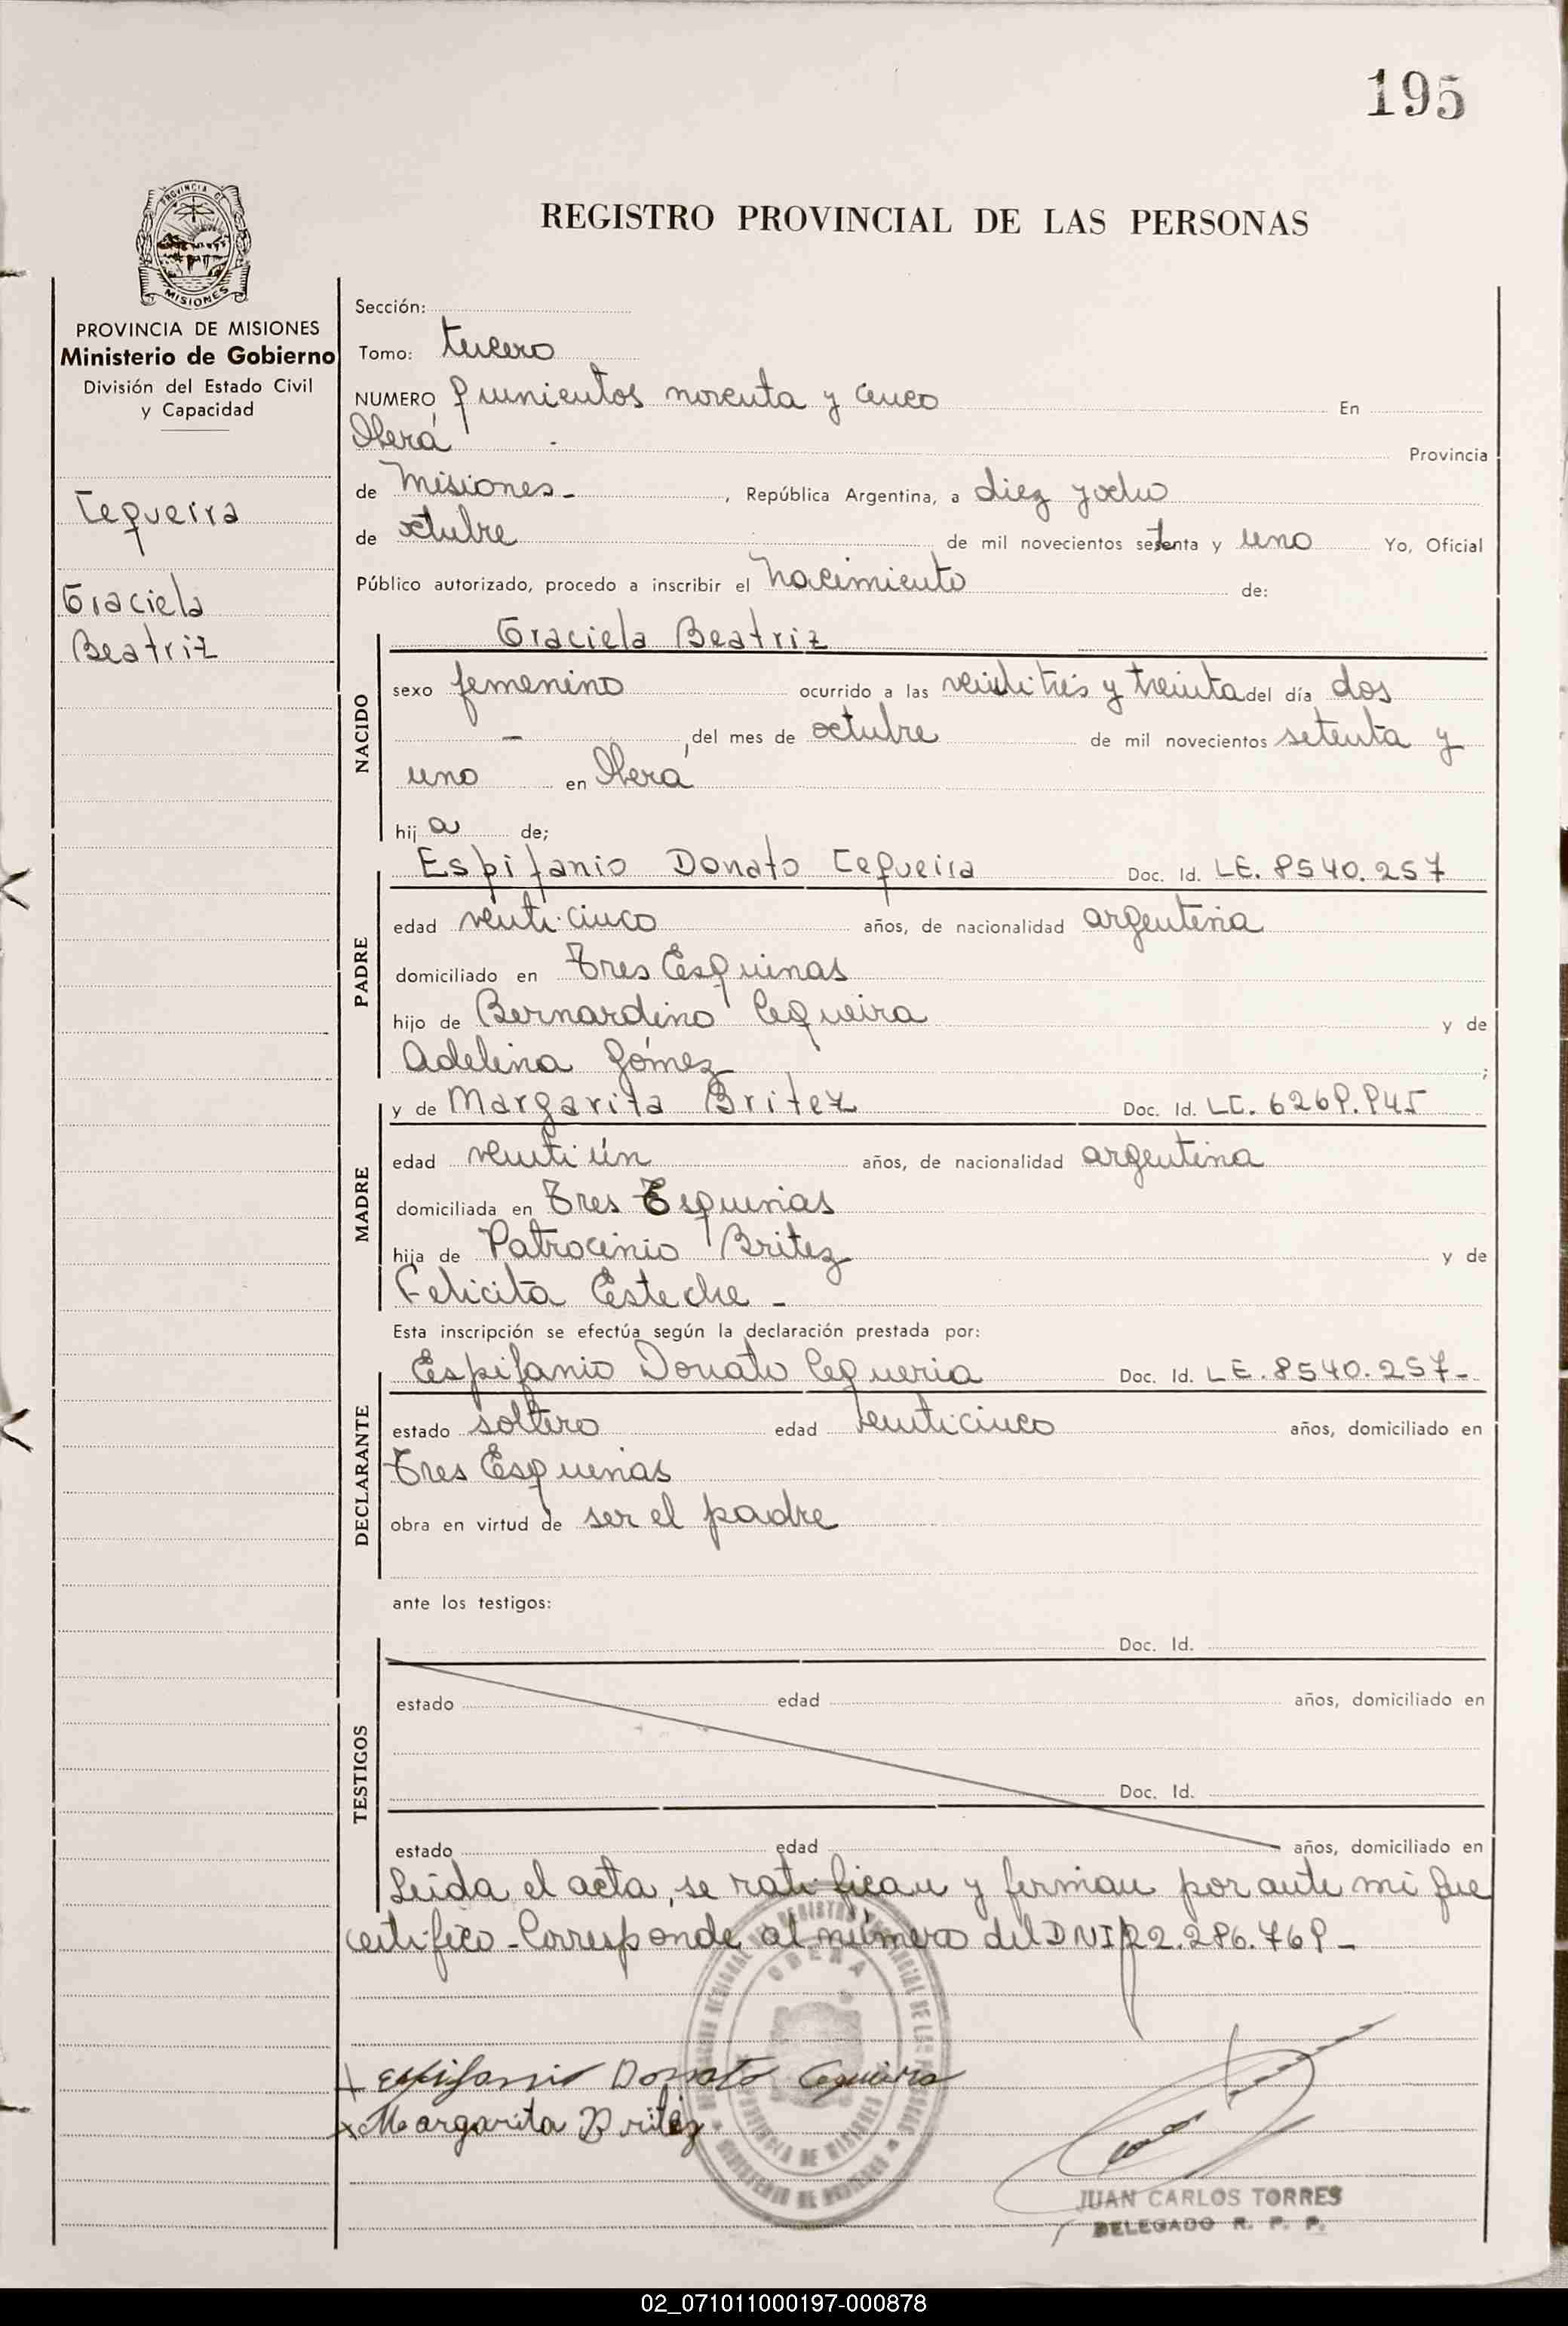 195
REGISTRO PROVINCIAL DE LAS PERSONAS
PROVINCIA DE MISIONES
Ministerio de Gobierno
División del Estado Civil
y Capacidad
Cequeira
Graciela
Beatriz
Sección:
Tomo: tercero
NUMERO quinientos noventa y cinco En
Oberá Provincia
de Misiones- , República Argentina, a diez y ocho
de octubre de mil novecientos setenta y uno Yo, Oficial
Público autorizado, procedo a inscribir el nacimiento de:
NACIDO
Graciela Beatriz
sexo femenino ocurrido a las veintitrés y treinta del día dos
- del mes de octubre de mil novecientos setenta y
uno en Oberá
hij a de;
PADRE
Espifanio Donato Cequeira Doc. Id. LE. 8540.257
edad venticinco años, de nacionalidad argentina
domiciliado en Tres Esquinas
hijo de Bernardino Cequeira y de
Adelina Gómez ;
MADRE
y de Margarita Britez Doc. Id. LC. 6269.945
edad ventiún años, de nacionalidad argentina
domiciliada en Tres Esquinas
hija de Patrocinio Britez y de
Felicita Esteche -
Esta inscripción se efectúa según la declaración prestada por:
DECLARANTE
Espifanio Donato Cequeria Doc. Id. LE. 8540.257-
estado soltero edad venticinco años, domiciliado en
Tres Esquinas
obra en virtud de ser el padre
ante los testigos:
TESTIGOS
Doc. Id.
estado edad años, domiciliado en
Doc. Id.
estado edad años, domiciliado en
Leida el acta, se ratifican y firman por ante mi que
certifico - Corresponde al número del DNI 22.286.769-
Espifanio Donato Cequeira
Margarita Britez
OBERA
PROVINCIA DE MISIONES
JUAN CARLOS TORRES
DELEGADO R. P. P.
02_071011000197-000878